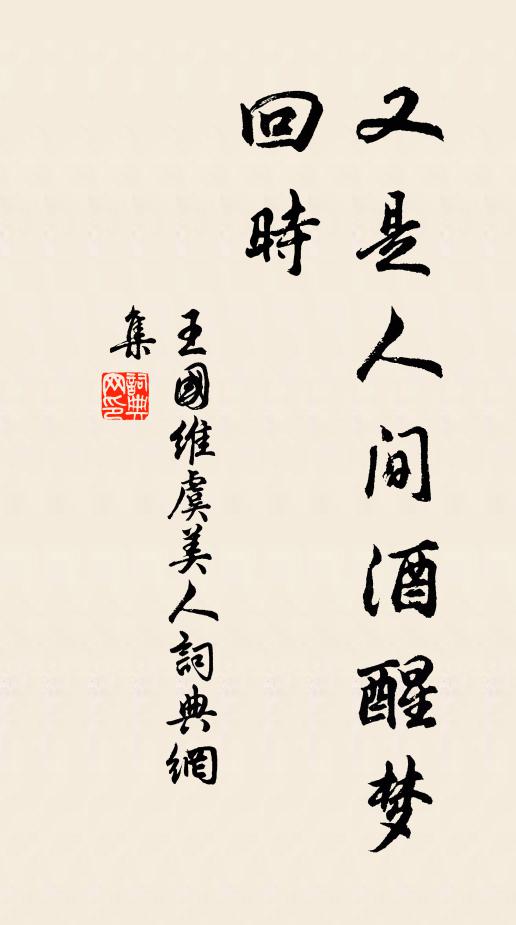 又是人间酒醒梦
回時
王國维虞美人詞典網
集
詞典
网印